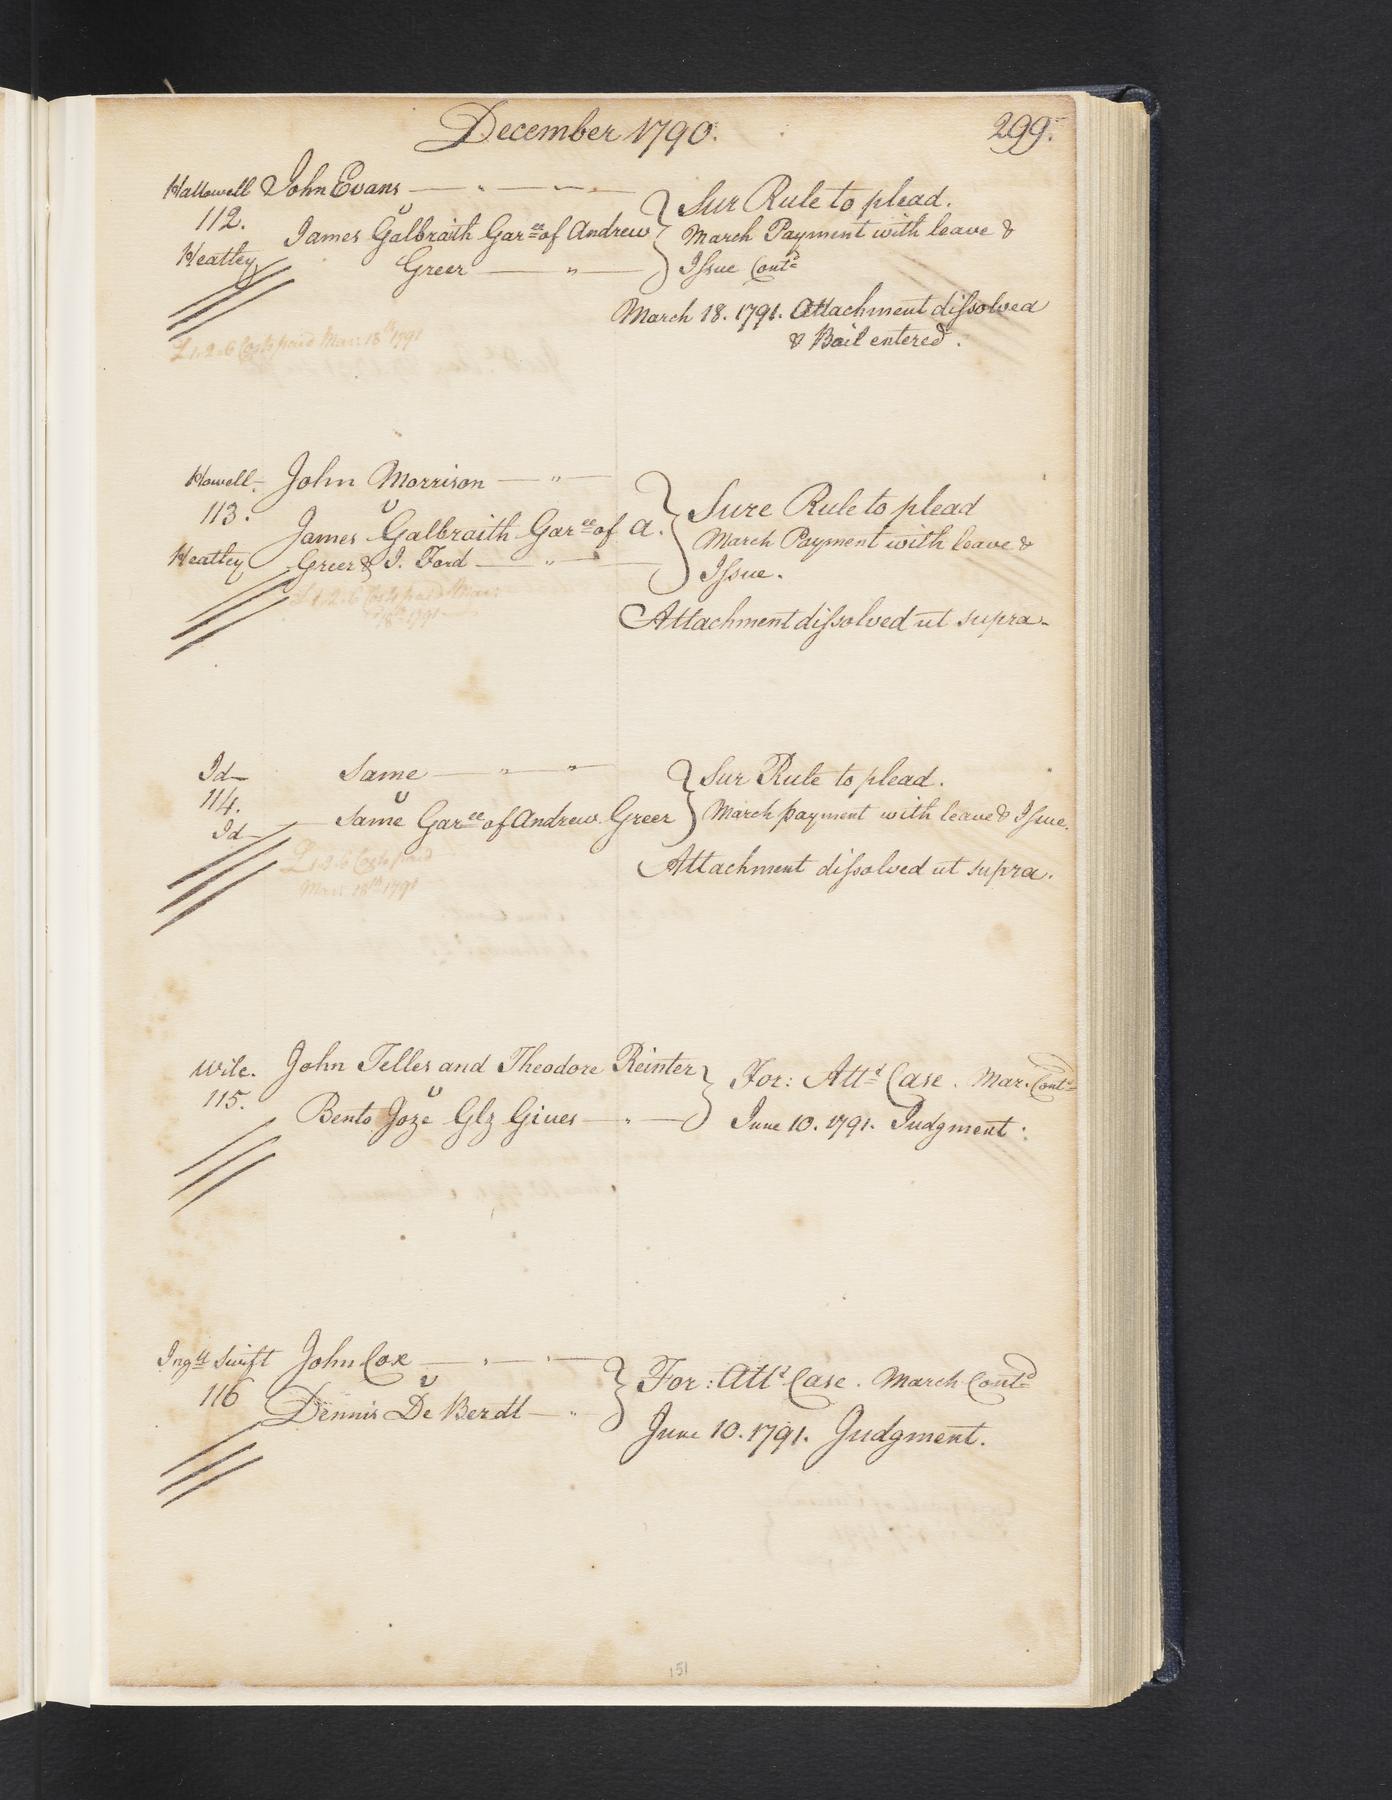 December 1790.
299.
Hallowell John Evans
112. v
Heatley James Galbraith Gar.ee of Andrew
Greer
Sur Rule to plead.
March Payment with leave &
Issue Cont.d
March 18. 1791. Attachment dissolved
& Bail entered.
£1.2.6 Costs paid Mar. 18th 1791
Howell. John Morrison
113. v
James Galbraith Gar.ee of A.
Heatley Greer & J. Ford
Sure Rule to plead
March Payment with leave &
Issue.
£1.2.6 Costs paid Mar.
18th 1791
Attachment dissolved ut supra.
Id Same
114. v
Id Same Gar.ee of Andrew Greer
Sur Rule to plead.
March payment with leave & Issue.
£1.2.6 Costs paid
Mar. 18th 1791
Attachment dissolved ut supra.
Wilc. John Telles and Theodore Reinter
115. v
Bento Joze Glz Giues
For: Att.d Case. Mar. Cont.d
June 10. 1791. Judgment.
Ing.ll Swift John Cox
116 v
Dennis De Berdt
For: Att.d Case. March Cont.d
June 10. 1791. Judgment.
151